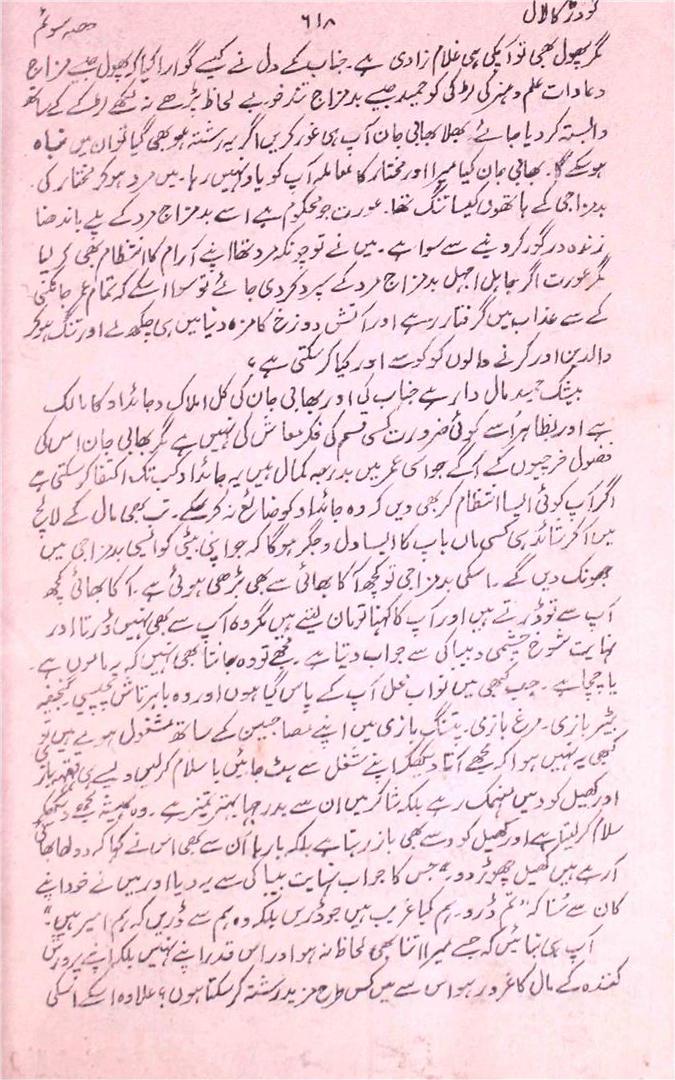 گودڑ کا لال ۶۱۸ حصہ سوئم
مگر پھول بھی تو ایکی ہی غلام زادی ہے۔ جناب کے دل نے کیسے گوارا کیا کہ پھول جیسے مزاج
وعادات علم وہنر کی لڑکی کو حمید جیسے بدمزاج تندخو بے لحاظ پڑھے نہ لکھے لڑکے کے ساتھ
وابستہ کردیا جائے بھلا بھابی جان آپ ہی غور کریں اگر یہ رشتہ ہو بھی گیا تو ان میں نباہ
ہوسکے گا۔ بھابی جان کیا میرا اور مختار کا معاملہ آپ کو یاد نہیں رہا۔ میں مرد ہوکر مختار کی
بدمزاجی کے ہاتھوں کیسا تنگ تھا۔ عورت جو محکوم ہے اسے بدمزاج مرد کے پلے باندھنا
زندہ درگور کردینے سے سوا ہے۔ میں نے تو چونکہ مرد تھا اپنے آرام کا انتظام بھی کرلیا
مگر عورت اگر جاہل اجہل بدمزاج مرد کے سپرد کردی جائے تو سوا اسکے کہ تمام عمر جانکنی
کے سے عذاب میں گرفتار رہے اور آتش دوزخ کا مزہ دنیا میں ہی چکھ لے اور تنگ ہوکر
والدین اور کرنے والوں کو کوسے اور کیا کرسکتی ہے؟
بیشک حمید مال دار ہے جناب کی اور بھابی جان کی کل املاک وجائداد کا مالک
ہے اور بظاہر اُسے کوئی ضرورت کسی قسم کی فکر معاش کی نہیں ہے مگر بھابی جان اس کی
فضول خرچیوں کے آگے جو اسی عمر میں بدرجہ کمال ہیں یہ جائداد کب تک اکتفا کرسکتی ہے
اگر آپ کوئی ایسا انتظام کر بھی دیں کہ وہ جائداد کو ضائع نہ کرسکے۔ تب بھی مال کے لالچ
میں آکر شائد ہی کسی ماں باپ کا ایسا دل وجگر ہوگا کہ جو اپنی بیٹی کو ایسی بدمزاجی میں
جھونک دیں گے۔ اسکی بدمزاجی تو کچھ آکا بھائی سے بھی بڑھی ہوئی ہے۔ آکا بھائی کچھ
آپ سے تو ڈرتے ہیں اور آپ کا کہنا تو مان لیتے ہیں مگر وہ آپ سے بھی نہیں ڈرتا اور
نہایت شوخ چشمی وبیباکی سے جواب دیتا ہے۔ مجھے تو وہ جانتا بھی نہیں کہ یہ ماموں ہے۔
یا چچا ہے۔ جب کبھی میں نواب محل آپ کے پاس گیا ہوں اور وہ باہر تاش پچیسی گنجفہ
بٹیر بازی۔ مرغ بازی۔ پتنگ بازی میں اپنے مصاحبین کے ساتھ مشغول ہوئے ہیں تو
کبھی یہ نہیں ہوا کہ مجھے آتا دیکھکر اپنے شغل سے ہٹ جائیں یا سلام کرلیں ویسے ہی
اور کھیل کود میں منہمک رہے بلکہ شاکر میں ان سے بدرجہا بہتر تمیز ہے۔ وہ ہمیشہ مجھے دیکھکر
سلام کرلیتا ہے اور کھیل کود سے بھی باز رہتا ہے بلکہ بارہا اُن سے بھی اس نے کہا کہ دولھا بھائی
آرہے ہیں کھیل چھوڑ دو۔" جس کا جواب نہایت بیباکی سے یہ دیا اور میں نے خود اپنے
کان سے سُنا کہ "تم ڈرو۔ ہم کیا غریب ہیں جو ڈریں بلکہ وہ ہم سے ڈریں کہ ہم امیر ہیں۔"
آپ ہی بتائیں کہ جسے میرا اتنا بھی لحاظ نہ ہو اور اس قدر اپنے نہیں بلکہ اپنے پرورش
کنندہ کے مال کا غرور ہو اس سے میں کس طرح مزید رشتہ کرسکتا ہوں؟ علاوہ اسکے اسکی